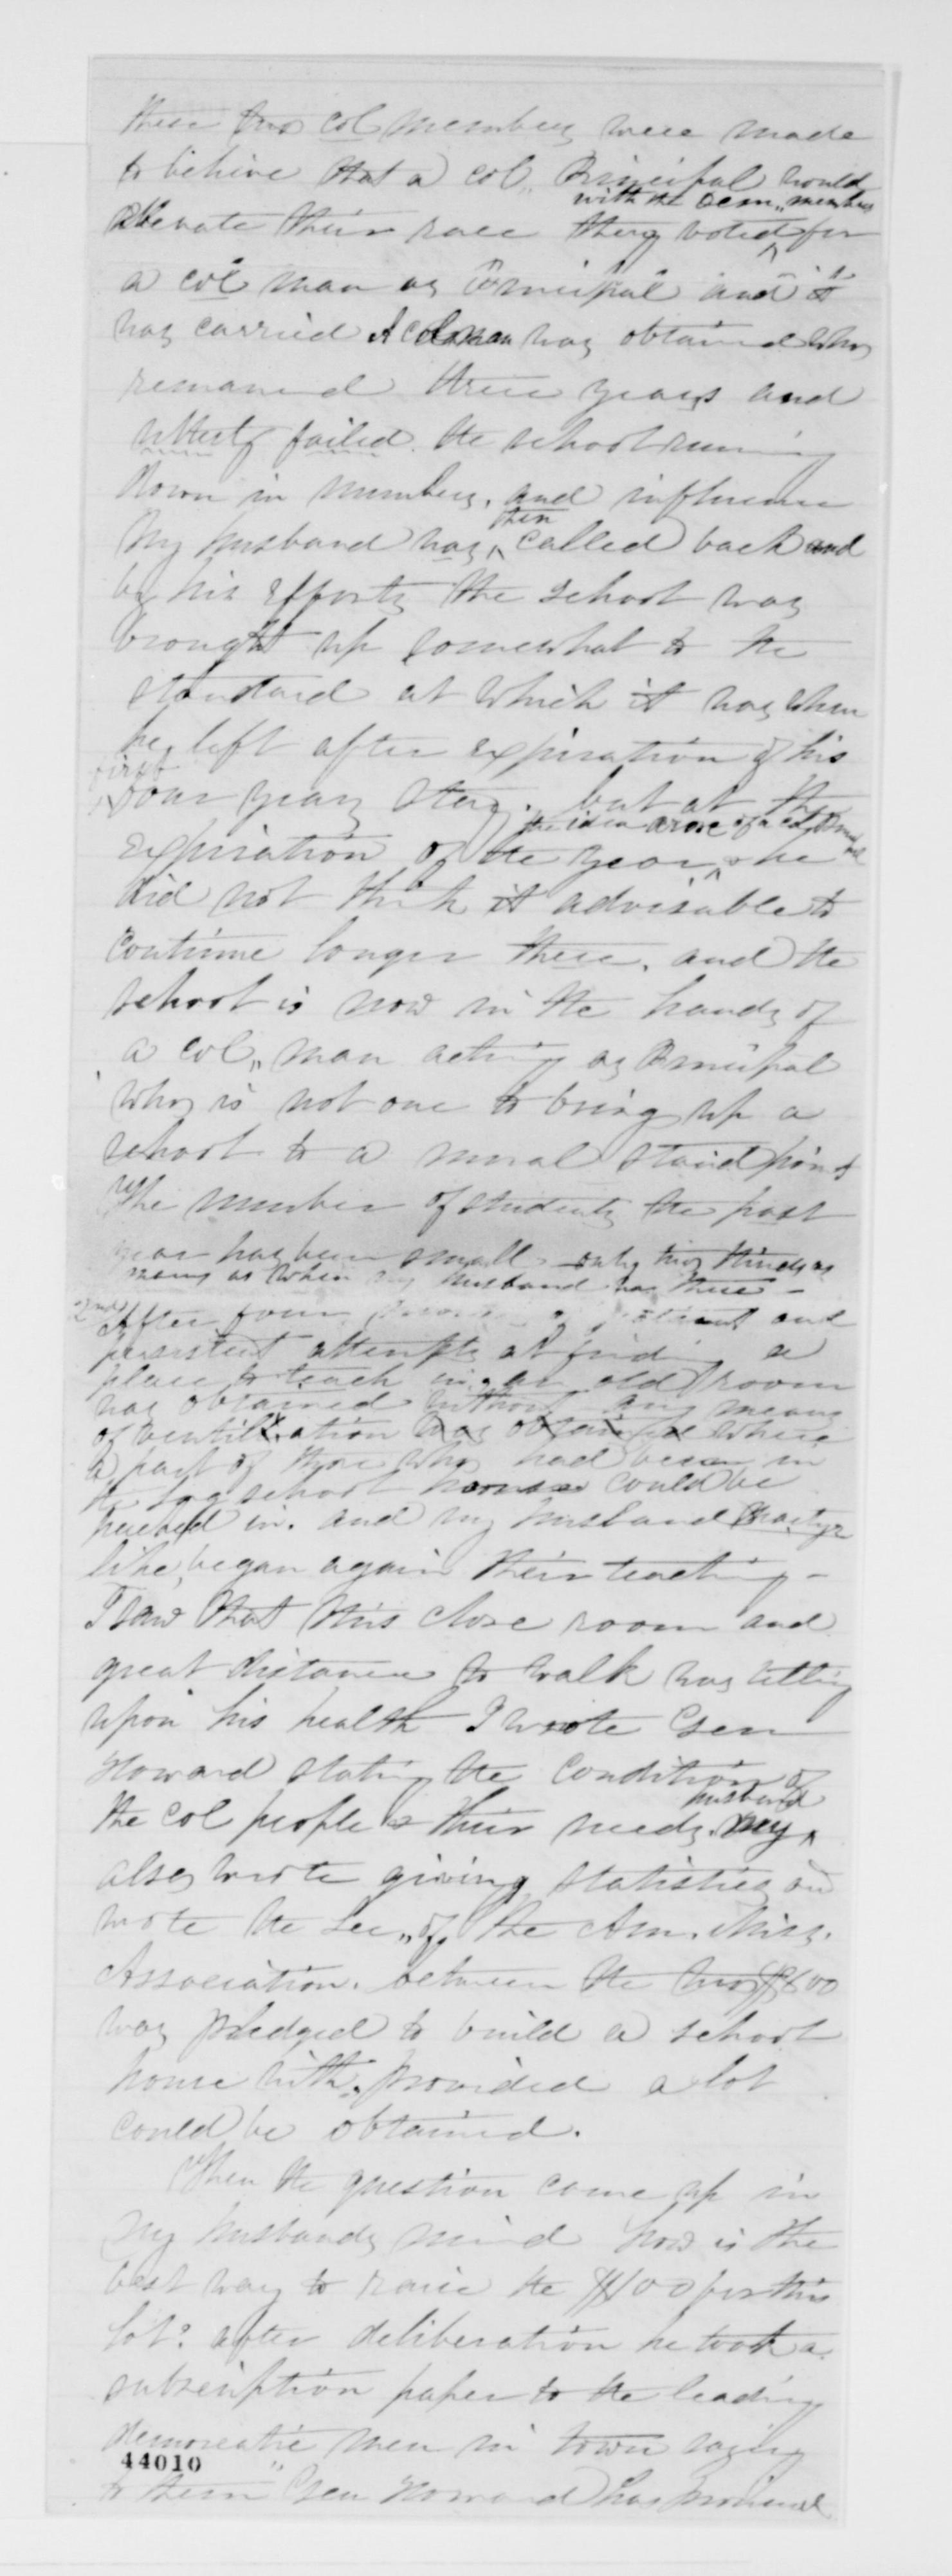 these two col members were made
to believe that a col,, Principal would
with the Dem,, members
elevate their race they voted ^ for
a col man as Principal and it
was carried A col man was obtained who
remained three years and
utterly failed. the school running
down in numbers, and influence
then
My husband was ^ called back and
by his efforts the school was
brought up somewhat to the
standard at which it was when
he left after expiration of his
first
^ four years stay. but at the
the idea arose of a col
expiration of the year, ^ he
did not think it advisable to
continue longer there. and the
school is now in the hands of
a col,, man acting as Principal
who is not one to bring up a
school to a moral stand point
The number of students the past
year has been small only two thirds as
many as when my husband was there -
2nd
After four and
persistent attempts at finding a
place to teach in, an old room
was obtained without any means
of ventilation was obtained where
a part of those who had been in
the log school house could be
received in. and my husband Martyr
like, began again their teaching -
I saw that this close room and
great distance to walk was telling
upon his health I wrote Gen
Howard stating the condition of
husband
the col people & their needs. my ^
also wrote giving statistics and
wrote the Sec,, of the Am. Miss.
Association. between the two $800
was pledged to build a school
house with. provided a lot
could be obtained.
Then the question came up in
my husbands mind how is the
best way to raise the $100 for this
lot? after deliberation he took a
subscription paper to the leading
democratic men in town saying
44010
to them "Gen Howard has promised